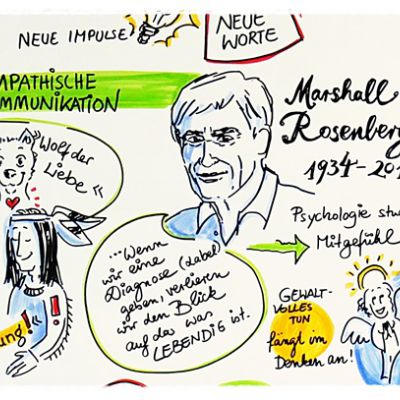 NEUE IMPULSE
NEUE
WORTE
MPATHISCHE
MMUNIKATION
Marshall
Rosenberg
1934-201
"Wolf der
Liebe"
Psychologie stu
Mitgefühl
...Wenn
wir eine
Diagnose (Label)
geben, verlieren
wir den Blick
auf das was
LEBENDIG ist.
GEWALT-
VOLLES
TUN
fängt im
Denken an!
ung!"